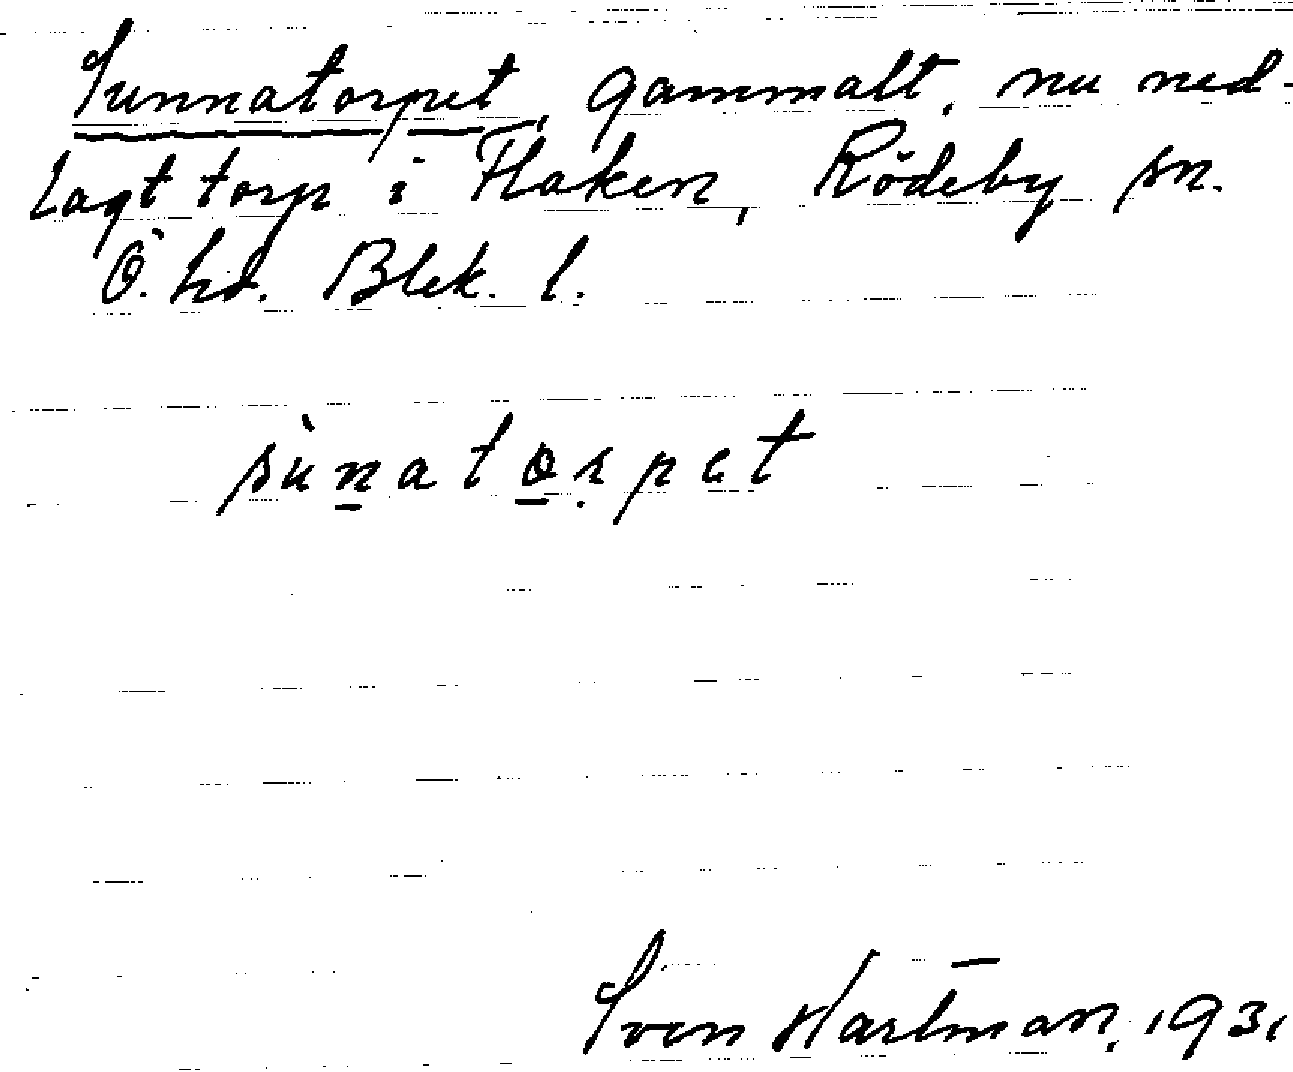 Sunnatorpet, gammalt, nu ned-
lagt torp i Flaken, Rödeby sn.
Ö. hd. Blek. l.
sùnatorpet
Sven Hartman, 1931